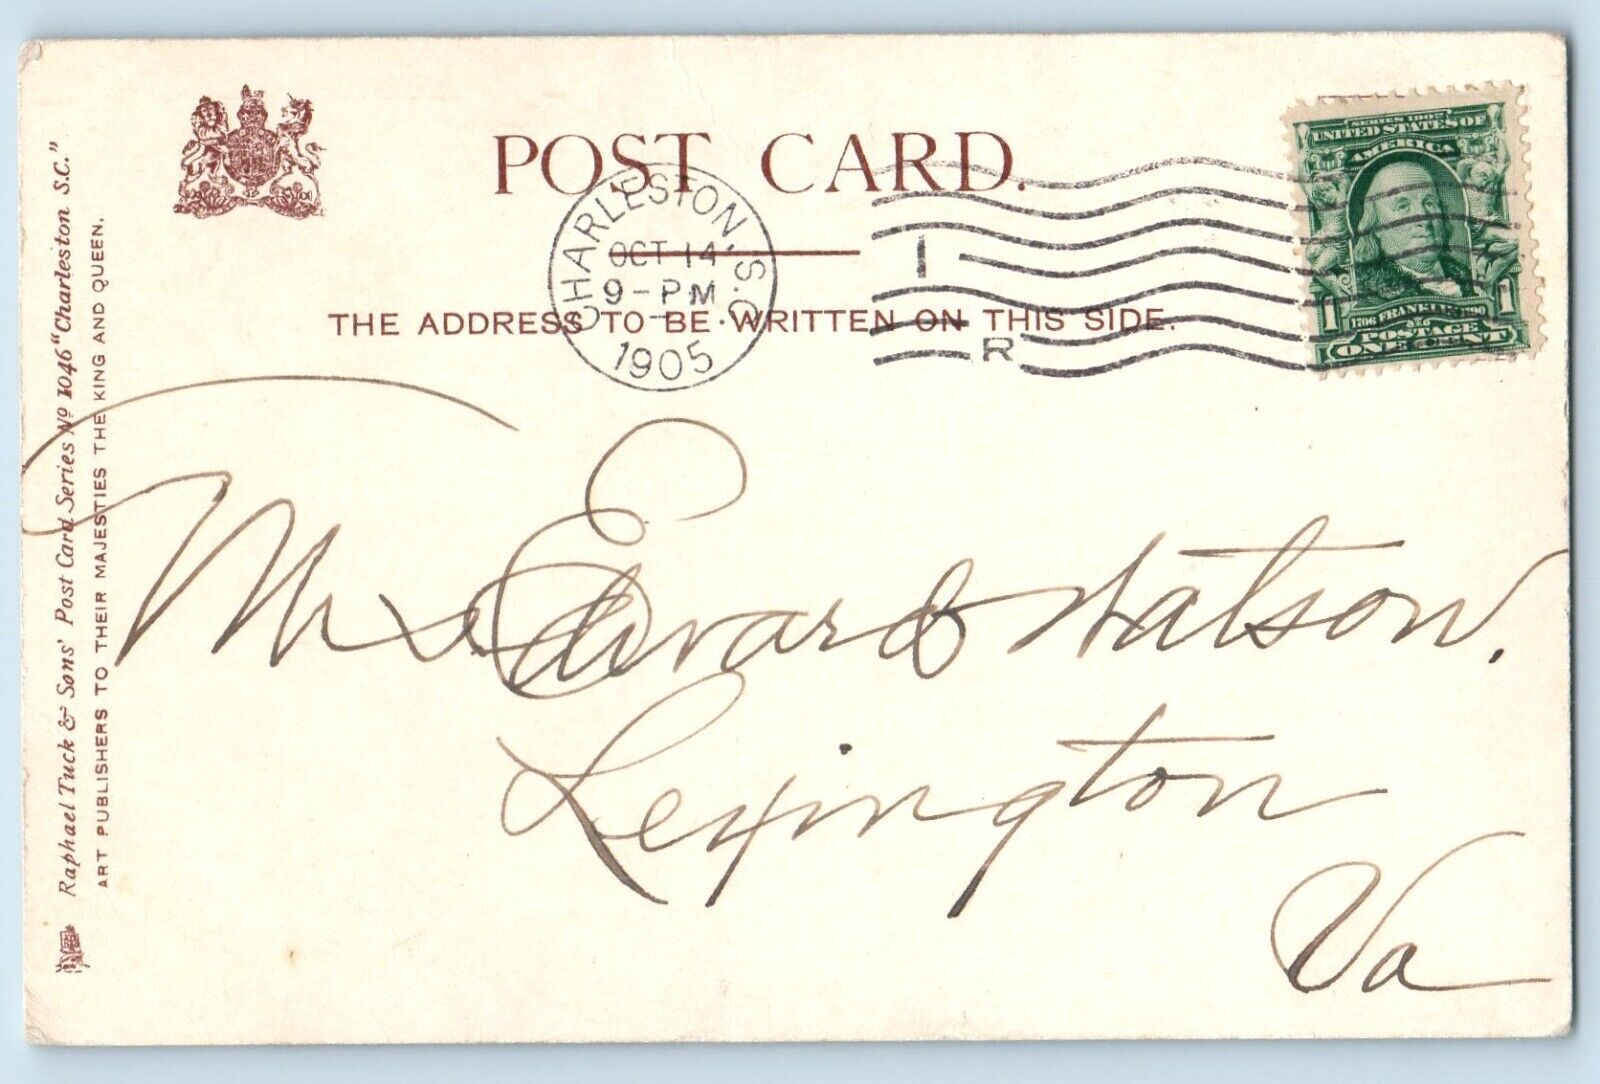 POST CARD.
CHARLESTON, S.C.
OCT 14
9-PM
1905
1
R
SERIES 1902
UNITED STATES OF
AMERICA
1706 FRANKLIN 1790
1 1
POSTAGE
ONE CENT
THE ADDRESS TO BE WRITTEN ON THIS SIDE.
Mrs. Edward Watson.
Lexington
Va
Raphael Tuck & Sons' Post Card Series No 1046 "Charleston S.C."
ART PUBLISHERS TO THEIR MAJESTIES THE KING AND QUEEN.